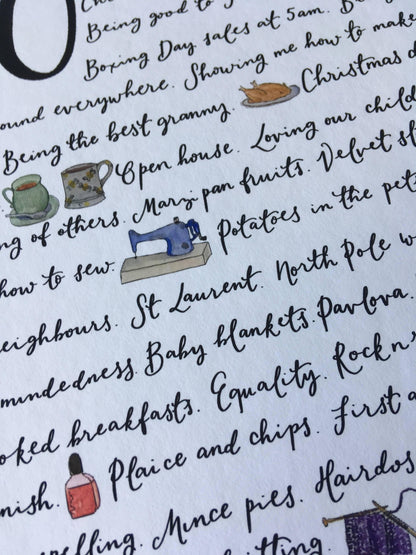 Being good to
Boxing Day sales at 5am.
ound everywhere. Showing me how to make
Being the best granny. Christmas d
Open house. Loving our child
ng of others. Marzipan fruits. Velvet sl
how to sew. Potatoes in the pet
eighbours. St Laurent. North Pole w
mindedness. Baby blankets. Pavlova.
ooked breakfasts. Equality. Rock n'
nish. Plaice and chips. First a
spelling. Mince pies. Hairdos
knitting